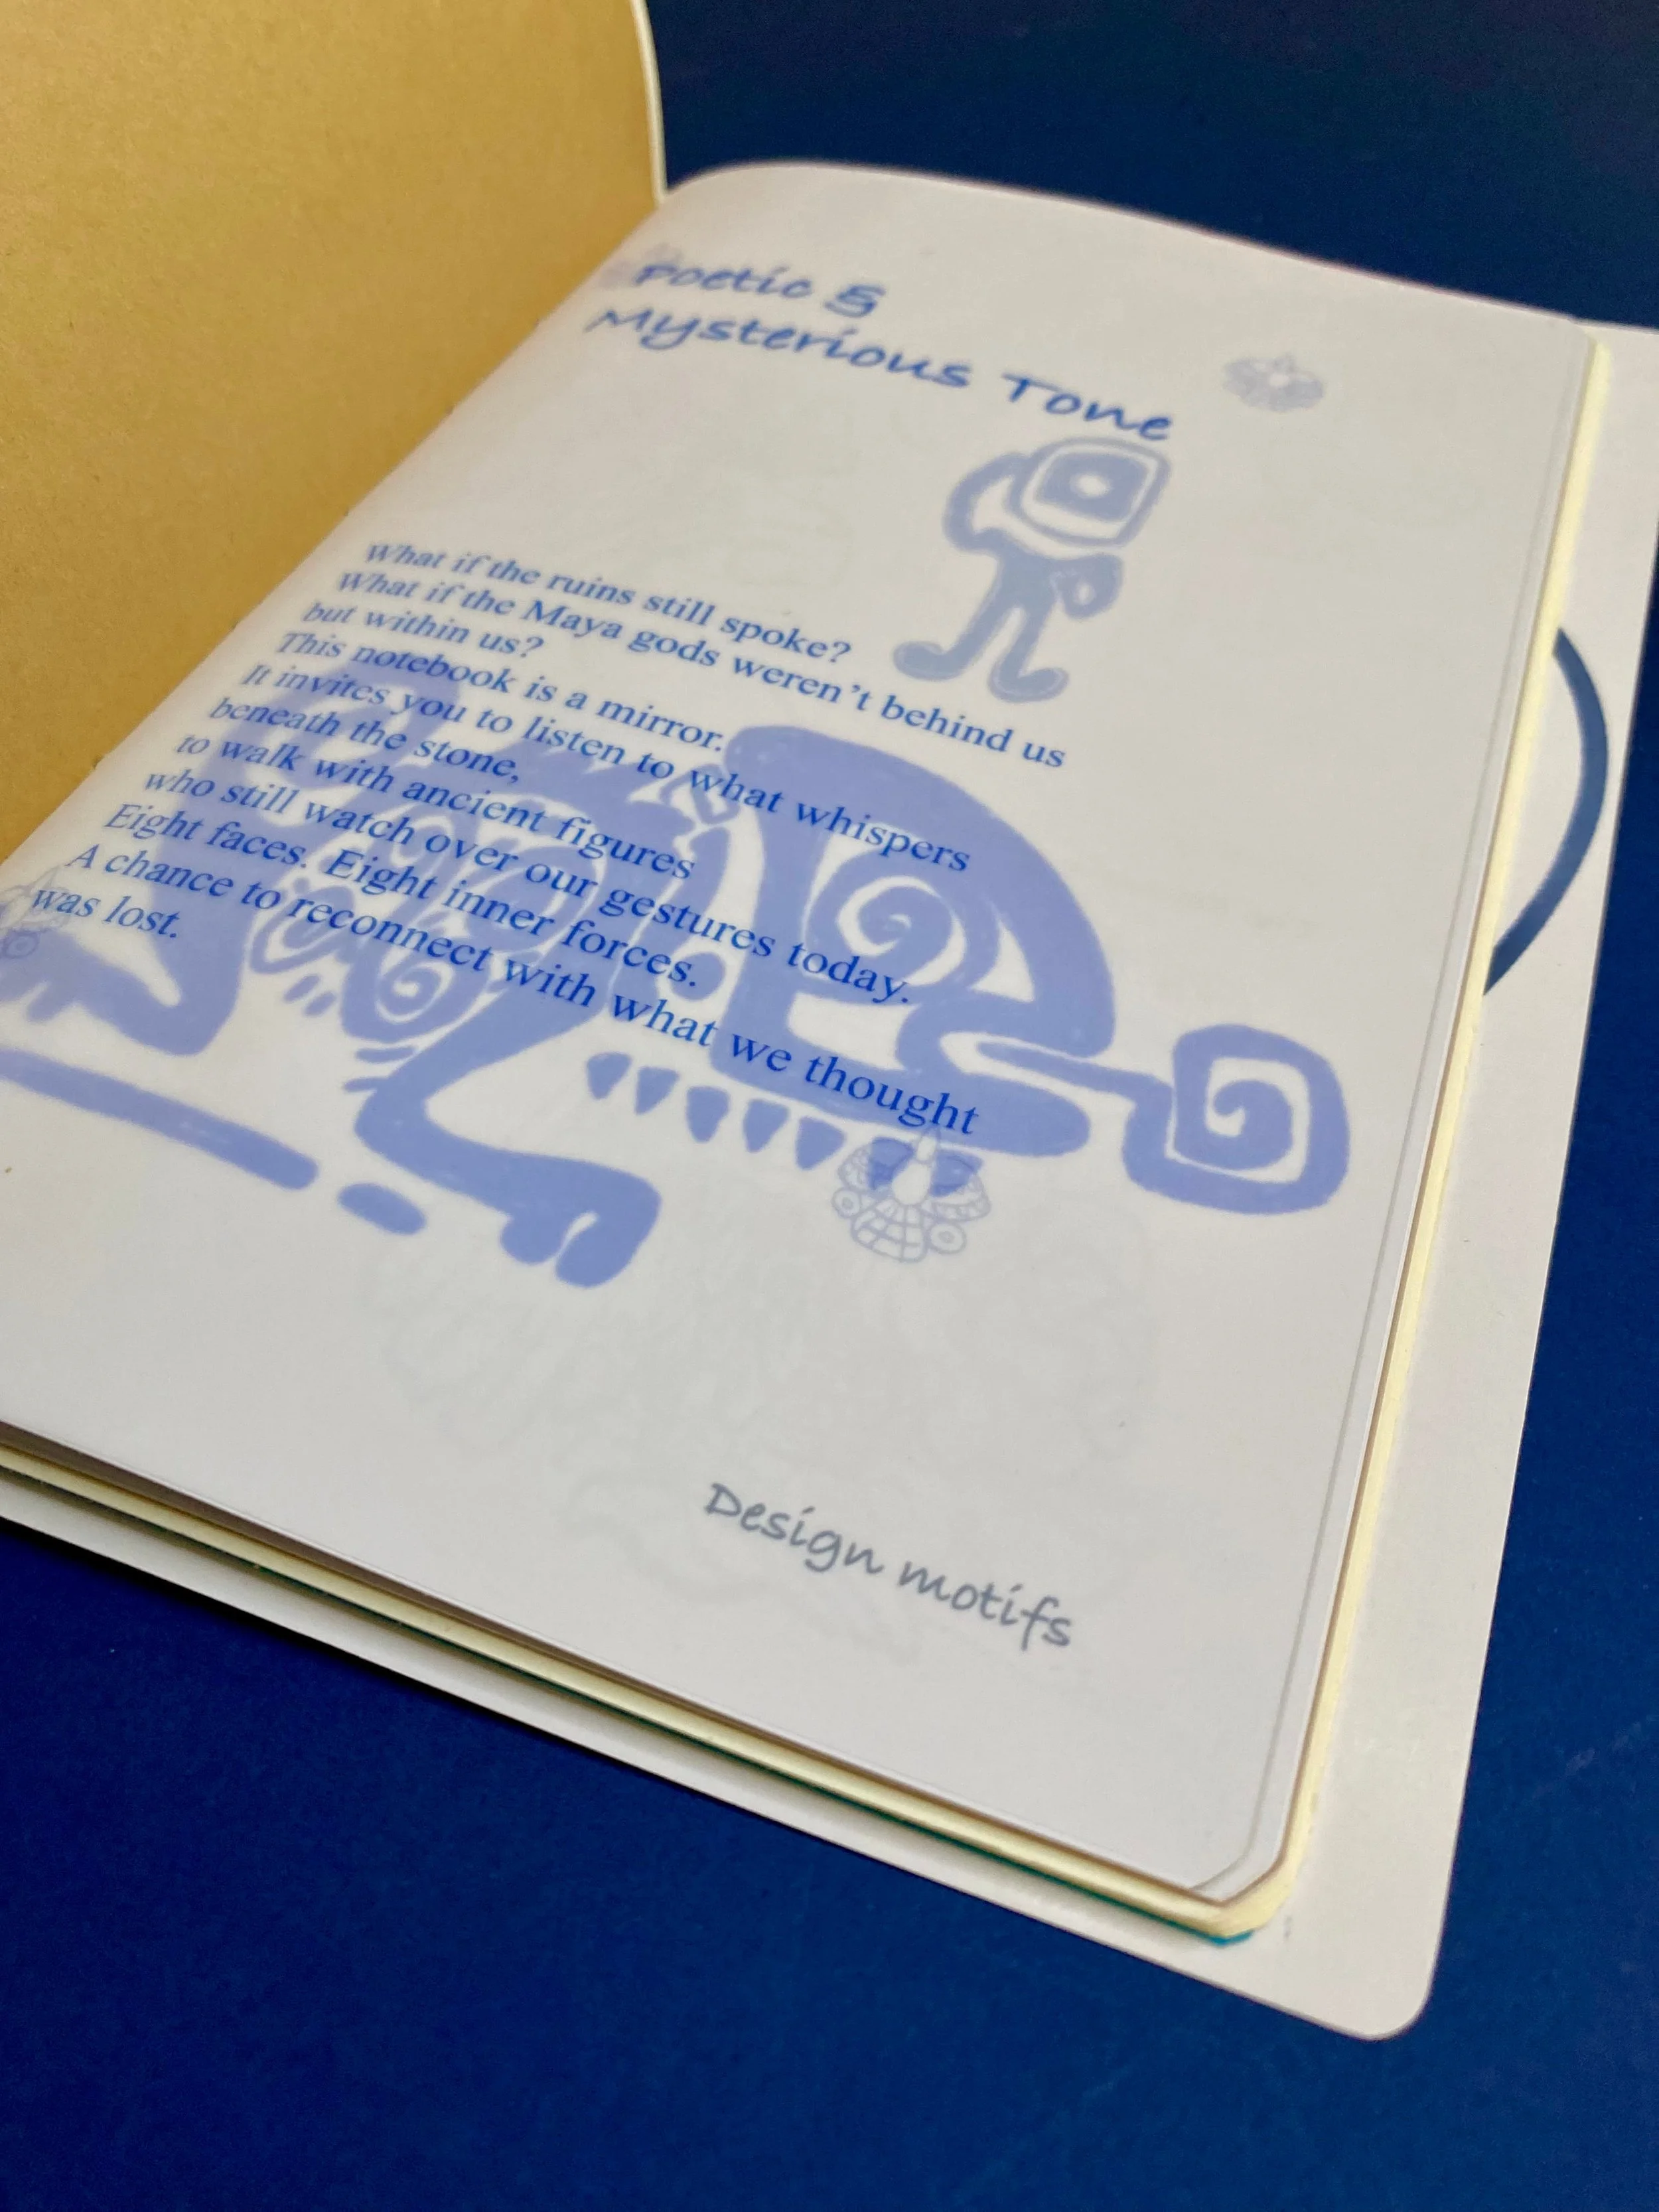 Poetic &
Mysterious Tone
What if the ruins still spoke?
What if the Maya gods weren't behind us
but within us?
This notebook is a mirror.
It invites you to listen to what whispers
beneath the stone,
to walk with ancient figures
who still watch over our gestures today.
Eight faces. Eight inner forces.
A chance to reconnect with what we thought
was lost.
Design motifs